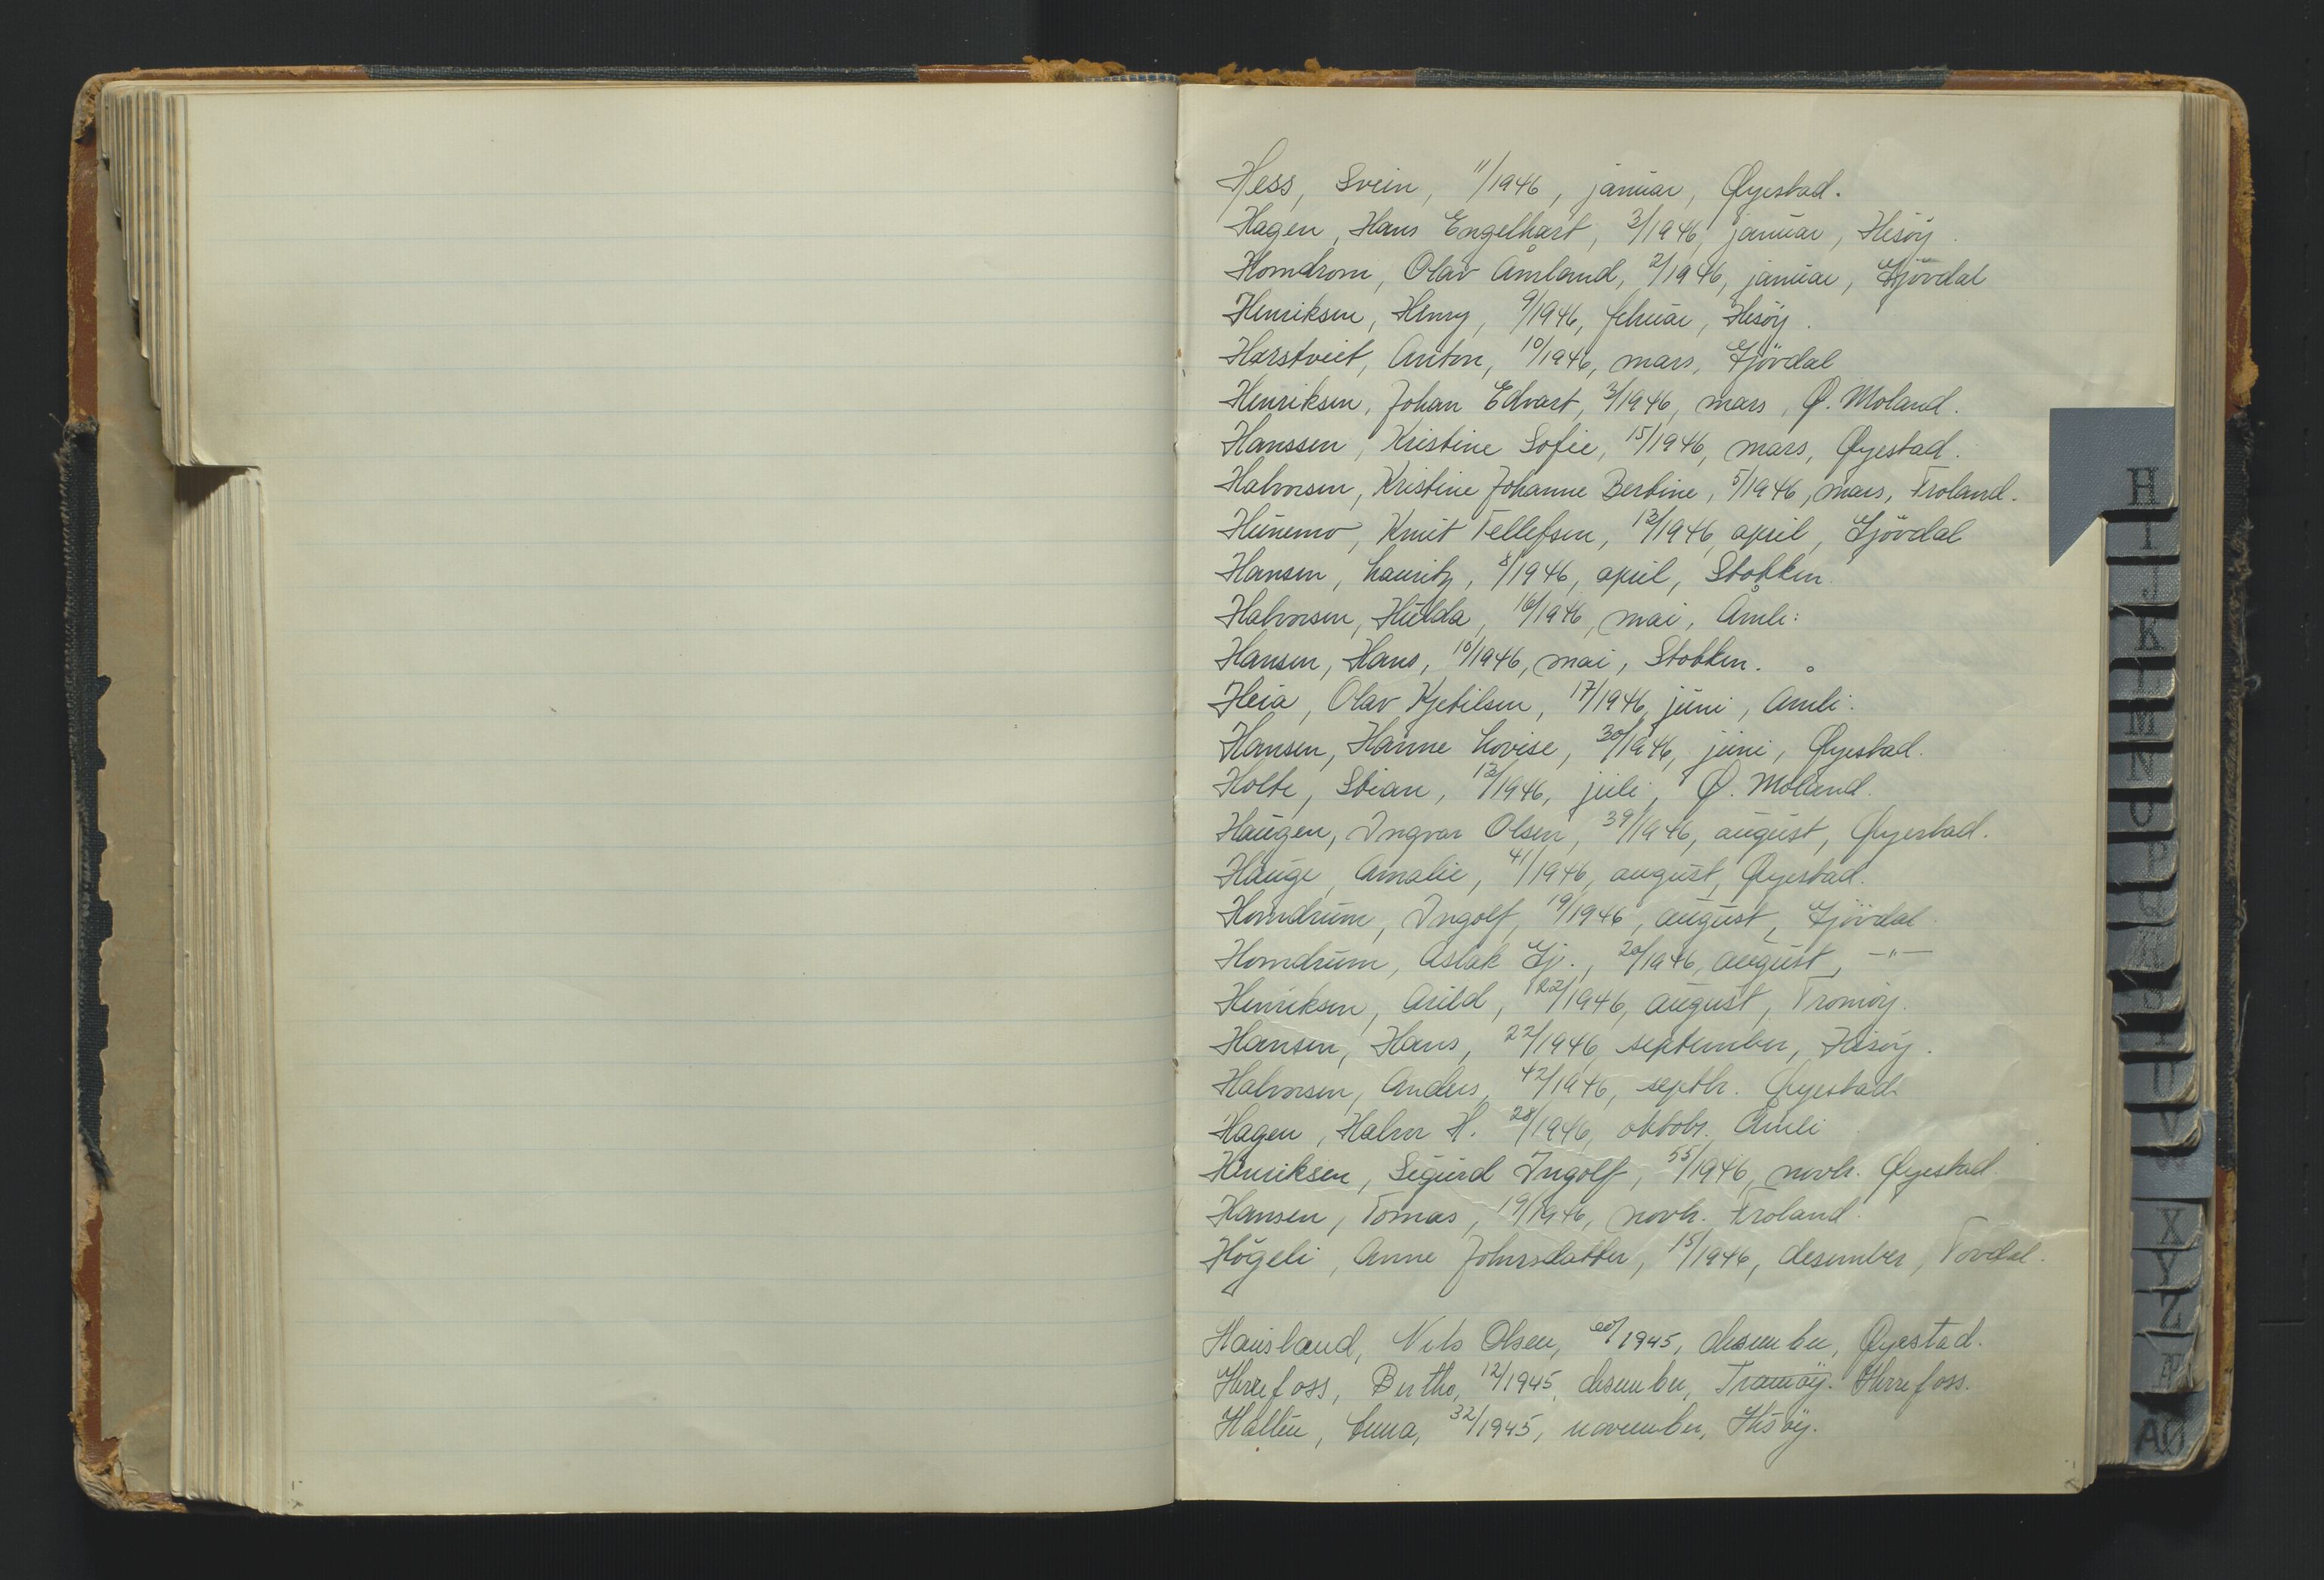 Hess, Svein, 11/1946, januar, Øyestad.
Hagen, Hans Engelhart, 3/1946, januar, Hisöy.
Homdrom, Olav Åmland, 2/1946, januar, Gjövdal
Henriksen, Henry, 9/1946, februar, Hisöy.
Harstveit, Anton, 10/1946, mars, Gjövdal
Henriksen, Johan Edvart, 3/1946, mars, Ø. Moland.
Hanssen, Kristine Sofie, 15/1946, mars, Øyestad.
Halvorsen, Kristine Johanne Bertine, 5/1946, mars, Froland.
Hunemo, Knut Tellefsen, 12/1946, april, Gjövdal
Hansen, Lauritz, 8/1946, april, Stokken.
Halvorsen, Hulda, 16/1946, mai, Åmli:
Hansen, Hans, 10/1946, mai, Stokken.
Heia, Olav Kjetilsen, 17/1946, juni, Åmli.
Hansen, Hanne Lovise, 30/1946, juni, Øyestad.
Holte, Stian, 13/1946, juli, Ø. Moland.
Haugen, Ingvar Olsen, 39/1946, august, Øyestad.
Hauge, Amalie, 41/1946, august, Øyestad.
Homdrum, Ingolf, 19/1946, august, Gjövdal.
Homdrum, Aslak Gj., 20/1946, august, —"—
Henriksen, Arild, 122/1946, august, Tromöy.
Hansen, Hans, 22/1946, september, Hisöy.
Halvorsen, Anders, 42/1946, septbr. Øyestad.
Hagen, Halvor H. 28/1946, oktobr. Åmli
Henriksen, Sigurd Ingolf, 55/1946, novbr. Øyestad.
Hansen, Tomas, 19/1946, novbr. Froland.
Högeli, Anne Johnsdatter, 15/1946, desember, Tovdal.
Hausland, Nils Olsen, 60/1945, desember, Øyestad.
Herefoss, Berthe, 12/1945, desember, Tromöy. Herrefoss.
Hallèn, Emma, 32/1945, november, Hisöy.
H
I
J
K
L
M
N
O
P
Q
R
S
T
U
V
W
X
Y
Z
Æ
AØ